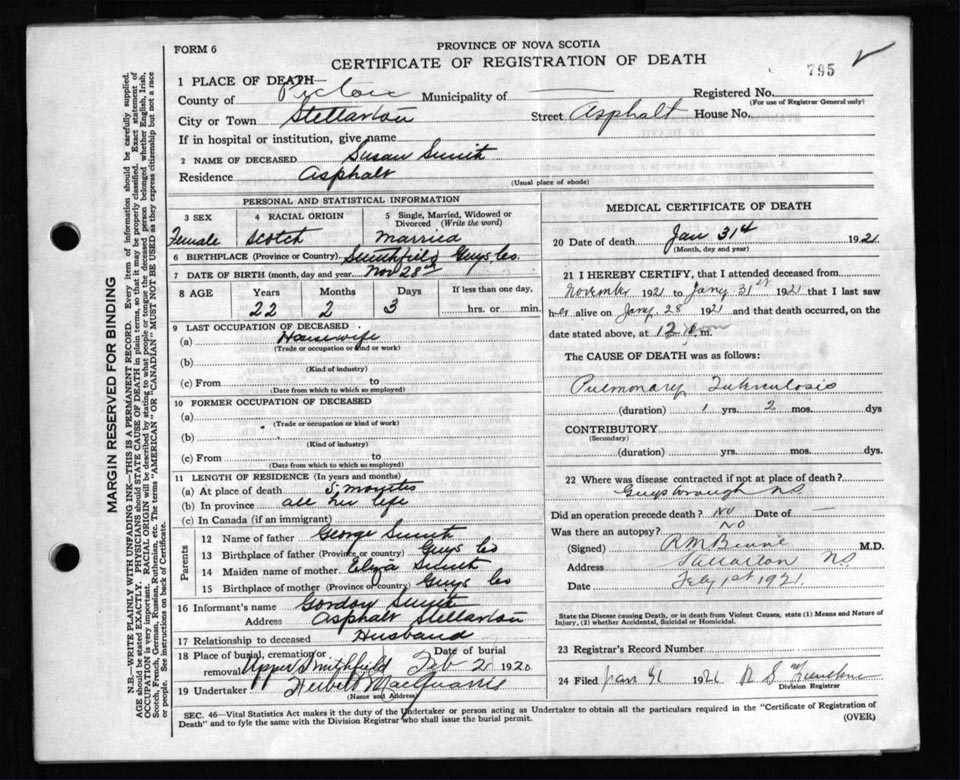 FORM 6
PROVINCE OF NOVA SCOTIA
CERTIFICATE OF REGISTRATION OF DEATH
795
1 PLACE OF DEATH—
County of Pictou Municipality of — Registered No.
(For use of Registrar General only)
City or Town Stellarton Street Asphalt House No.
If in hospital or institution, give name
2 NAME OF DECEASED Susan Smith
Residence Asphalt
(Usual place of abode)
PERSONAL AND STATISTICAL INFORMATION
3 SEX 4 RACIAL ORIGIN 5 Single, Married, Widowed or Divorced (Write the word)
Female Scotch Married
6 BIRTHPLACE (Province or Country) Smithfield Guys Co.
7 DATE OF BIRTH (month, day and year) Nov 28th
8 AGE Years Months Days If less than one day,
22 2 3 hrs. or min.
9 LAST OCCUPATION OF DECEASED
(a) Housewife
(Trade or occupation or kind or work)
(b)
(Kind of industry)
(c) From to
(Date from which to which so employed)
10 FORMER OCCUPATION OF DECEASED
(a)
(Trade or occupation or kind of work)
(b)
(Kind of industry)
(c) From to
(Date from which to which so employed)
11 LENGTH OF RESIDENCE (In years and months)
(a) At place of death 5 months
(b) In province all her life
(c) In Canada (if an immigrant)
Parents
12 Name of father George Smith
13 Birthplace of father (Province or country) Guys Co
14 Maiden name of mother Eliza Smith
15 Birthplace of mother (Province or country) Guys Co
16 Informant's name Gordon Smith
Address Asphalt Stellarton
17 Relationship to deceased Husband
18 Place of burial, cremation or removal Upper Smithfield Date of burial Feb 2 1920
19 Undertaker Herbert MacQuarrie
(Name and Address)
MEDICAL CERTIFICATE OF DEATH
20 Date of death Jan 31st 1921
(Month, day and year)
21 I HEREBY CERTIFY, that I attended deceased from
November 1921 to Jany 31st 1921 that I last saw
her alive on Jany 28 1921 and that death occurred, on the
date stated above, at 12 m.
The CAUSE OF DEATH was as follows:
Pulmonary Tuberculosis
(duration) 1 yrs. 2 mos. dys
CONTRIBUTORY
(Secondary)
(duration) yrs. mos. dys.
22 Where was disease contracted if not at place of death?
Guysborough N.S.
Did an operation precede death? No Date of —
Was there an autopsy? No
(Signed) R M Benvie M.D.
Address Stellarton N.S.
Date Feby 1st 1921
State the Disease causing Death, or in death from Violent Causes, state (1) Means and Nature of
Injury, (2) whether Accidental, Suicidal or Homicidal.
23 Registrar's Record Number
24 Filed Jan 31 1921
Division Registrar
SEC. 46—Vital Statistics Act makes it the duty of the Undertaker or person acting as Undertaker to obtain all the particulars required in the "Certificate of Registration of
Death" and to fyle the same with the Division Registrar who shall issue the burial permit.
(OVER)
MARGIN RESERVED FOR BINDING
N.B.—WRITE PLAINLY WITH UNFADING INK—THIS IS A PERMANENT RECORD. Every item of information should be carefully supplied.
AGE should be stated EXACTLY. PHYSICIANS should STATE CAUSE OF DEATH in plain terms, so that it may be properly classified. Exact statement of
OCCUPATION is very important. RACIAL ORIGIN will be described by stating to what people or tongue the deceased person belonged whether English, Irish,
Scotch, French, German, Russian, Ruthenian, etc. The terms "AMERICAN" OR "CANADIAN" MUST NOT BE USED as they express citizenship but not a race
or people. See instructions on back of Certificate.